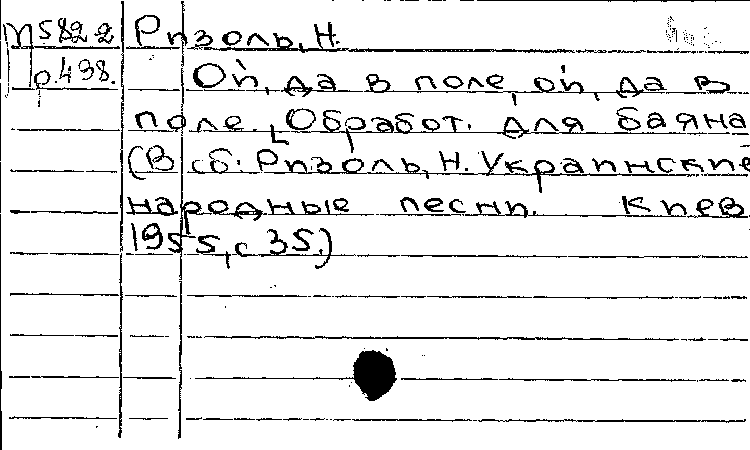 М582-2 Ризоль, Н.
р.438. Ой, да в поле, ой, да в
поле. [Обработ. для баяна
(В сб: Ризоль, Н. Украинские
народные песни. Киев
1955, с 35.)